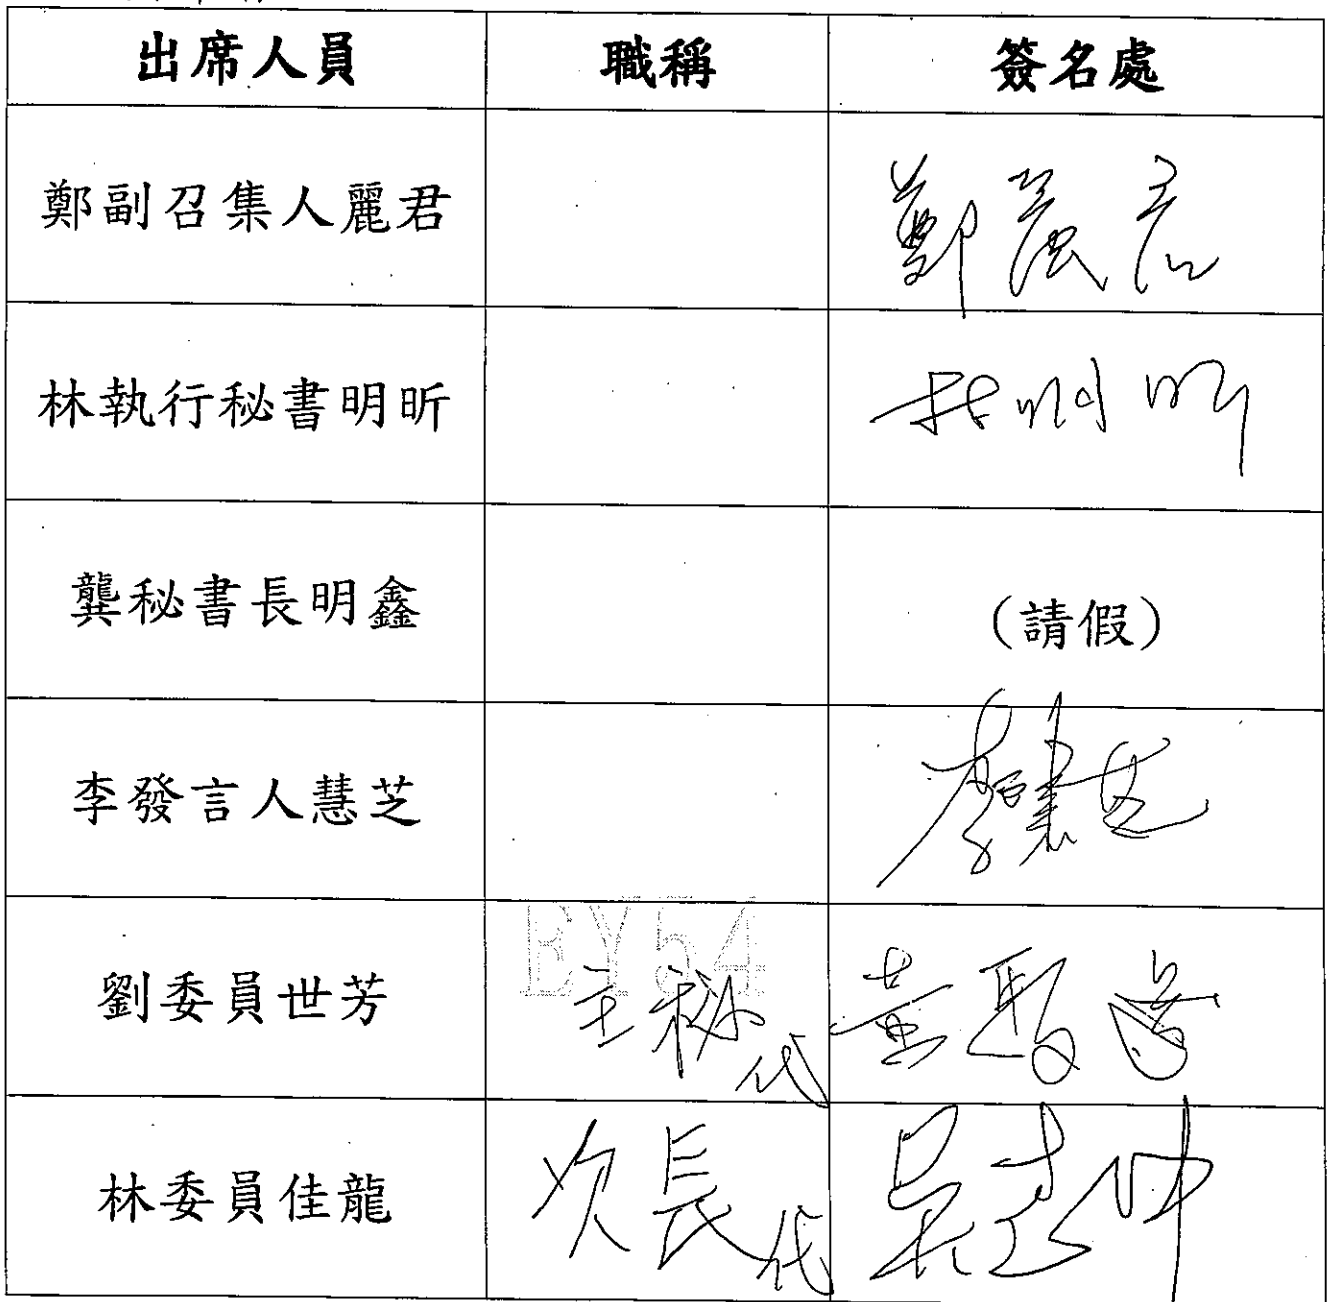 出席人員 職稱 簽名處
鄭副召集人麗君 鄭麗君
林執行秘書明昕 林明昕
龔秘書長明鑫 (請假)
李發言人慧芝 李慧芝
EY54
劉委員世芳 主秘代 黃
林委員佳龍 次長代 吳志中